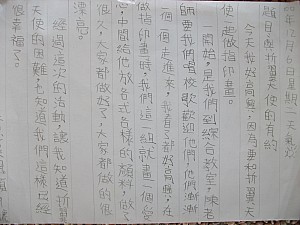 年12月6日星期一天氣
題目與折翼天使的有約
今天我好高興,因為要和折翼天
使一起做指印畫。
開始,是我們到綜合教室,陳老
師要我們唱校歌歡迎他們,他們漸漸
一個個走進來,我看了都好高興,在
做指印畫時,我們這一組就畫一個愛
心,中間給他放各式各樣的顏料,做了
很久,大家都做好了,大家都做的很
漂亮。
經過這次的活動,讓我知道折翼
天使的困難,也知道我們這樣已經
很幸福了。